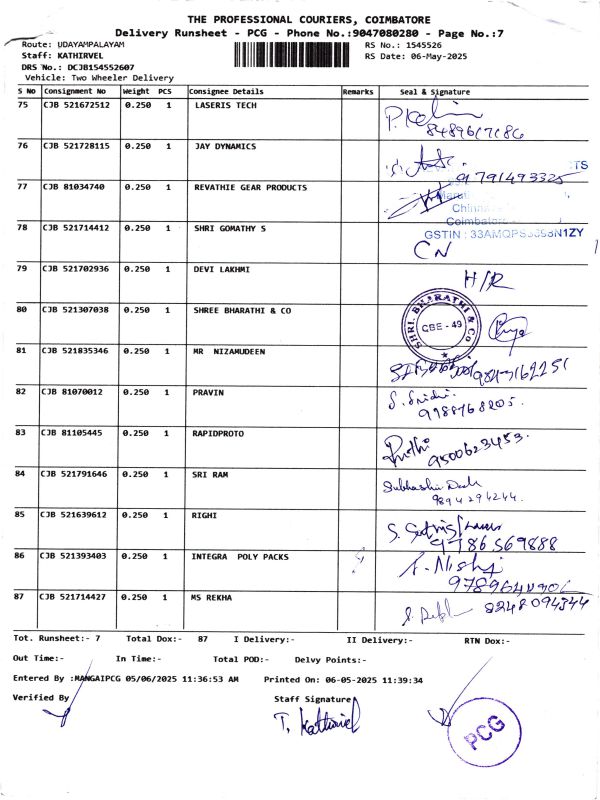 THE PROFESSIONAL COURIERS, COIMBATORE
Delivery Runsheet - PCG - Phone No.:9047080280 - Page No.:7
Route: UDAYAMPALAYAM RS No.: 1545526
Staff: KATHIRVEL RS Date: 06-May-2025
DRS No.: DCJB154552607
Vehicle: Two Wheeler Delivery
S No Consignment No Weight PCS Consignee Details Remarks Seal & Signature
75 CJB 521672512 0.250 1 LASERIS TECH
8489617186
76 CJB 521728115 0.250 1 JAY DYNAMICS
TS
9791493325
77 CJB 81034740 0.250 1 REVATHIE GEAR PRODUCTS
Coimbatore
78 CJB 521714412 0.250 1 SHRI GOMATHY S
GSTIN : 33AMQPS3698N1ZY
CN
79 CJB 521702936 0.250 1 DEVI LAKHMI
H/R
80 CJB 521307038 0.250 1 SHREE BHARATHI & CO
SHRI. BHARATHI & Co
CBE - 49
81 CJB 521835346 0.250 1 MR NIZAMUDEEN
82 CJB 81070012 0.250 1 PRAVIN
S. Sridhi
9788768205.
83 CJB 81105445 0.250 1 RAPIDPROTO
9500623453.
84 CJB 521791646 0.250 1 SRI RAM
Subhashis Dash
9894294244.
85 CJB 521639612 0.250 1 RIGHI
9786569888
86 CJB 521393403 0.250 1 INTEGRA POLY PACKS
A. Nishj
87 CJB 521714427 0.250 1 MS REKHA
8248094344
Tot. Runsheet:- 7 Total Dox:- 87 I Delivery:- II Delivery:- RTN Dox:-
Out Time:- In Time:- Total POD:- Delvy Points:-
Entered By :MANGAIPCG 05/06/2025 11:36:53 AM Printed On: 06-05-2025 11:39:34
Verified By Staff Signature
T. Kathirvel
PCG